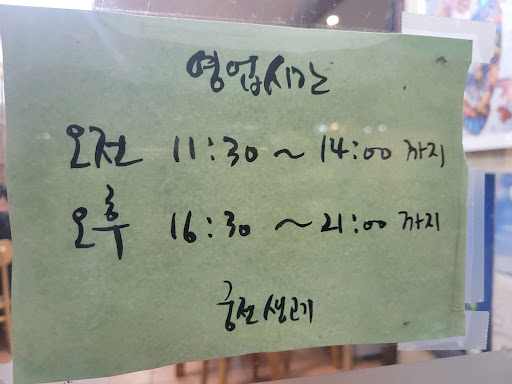 영업시간
오전 11:30 ~ 14:00 까지
오후 16:30 ~ 21:00 까지
궁전생고기